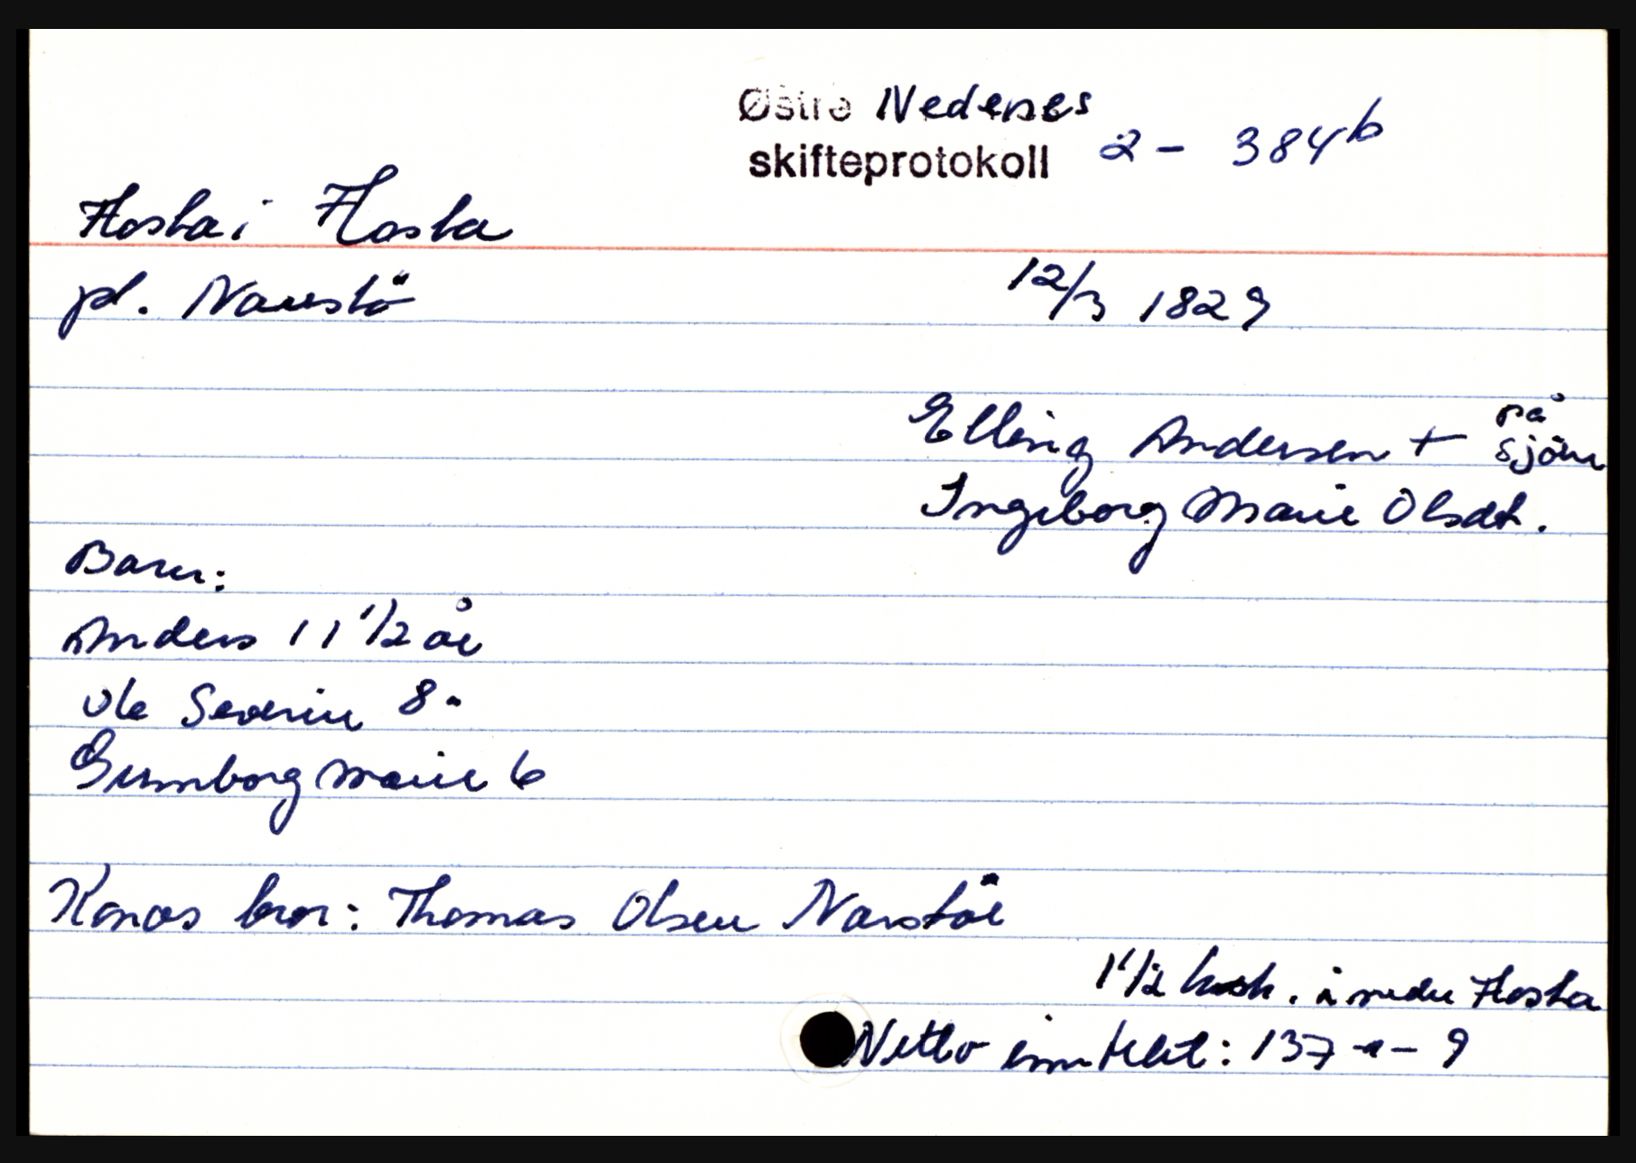 Østre Nedenes
skifteprotokoll 2 - 384b
Flosta i Flosta
pl. Naustö
12/3 1829
Elling Andersen + på sjöen
Ingeborg Marie Olsdt.
Barn:
Anders 11 1/2 år
Ole Severin 8 "
Gunnborg Marie 6
Konas bror: Thomas Olsen Narstöe
1 1/2 hush. i nedre Flosta
Netto inntekt: 137 - " - 9